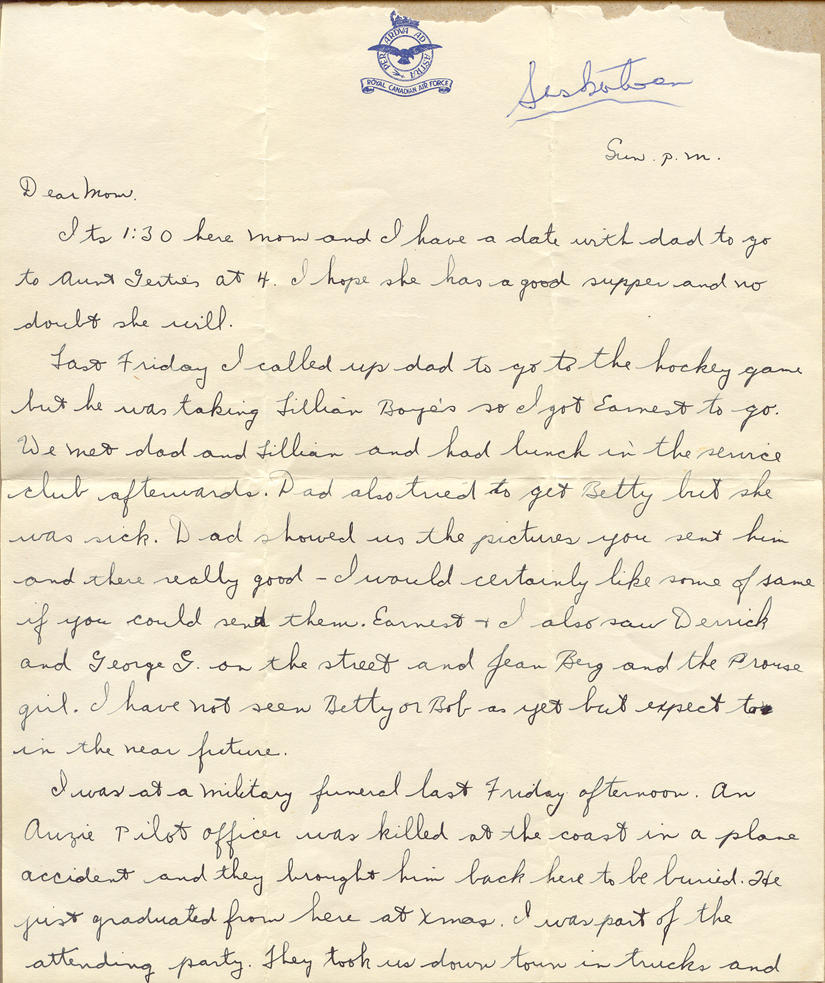 PER ARDVA AD ASTRA
ROYAL CANADIAN AIR FORCE
Saskatoon
Sun. p.m.
Dear Mom.
Its 1:30 here Mom and I have a date with dad to go
to Aunt Gertie's at 4. I hope she has a good supper and no
doubt she will.
Last Friday I called up dad to go to the hockey game
but he was taking Lillian Boyes so I got Earnest to go.
We met dad and Lillian and had lunch in the service
club afterwards. Dad also tried to get Betty but she
was sick. Dad showed us the pictures you sent him
and there really good - I would certainly like some of same
if you could send them. Earnest + I also saw Derrick
and George G. on the street and Jean Berg and the Prouse
girl. I have not seen Betty or Bob as yet but expect to
in the near future.
I was at a military funeral last Friday afternoon. An
Auzie Pilot officer was killed at the coast in a plane
accident and they brought him back here to be buried. He
just graduated from here at Xmas. I was part of the
attending party. They took us down town in trucks and